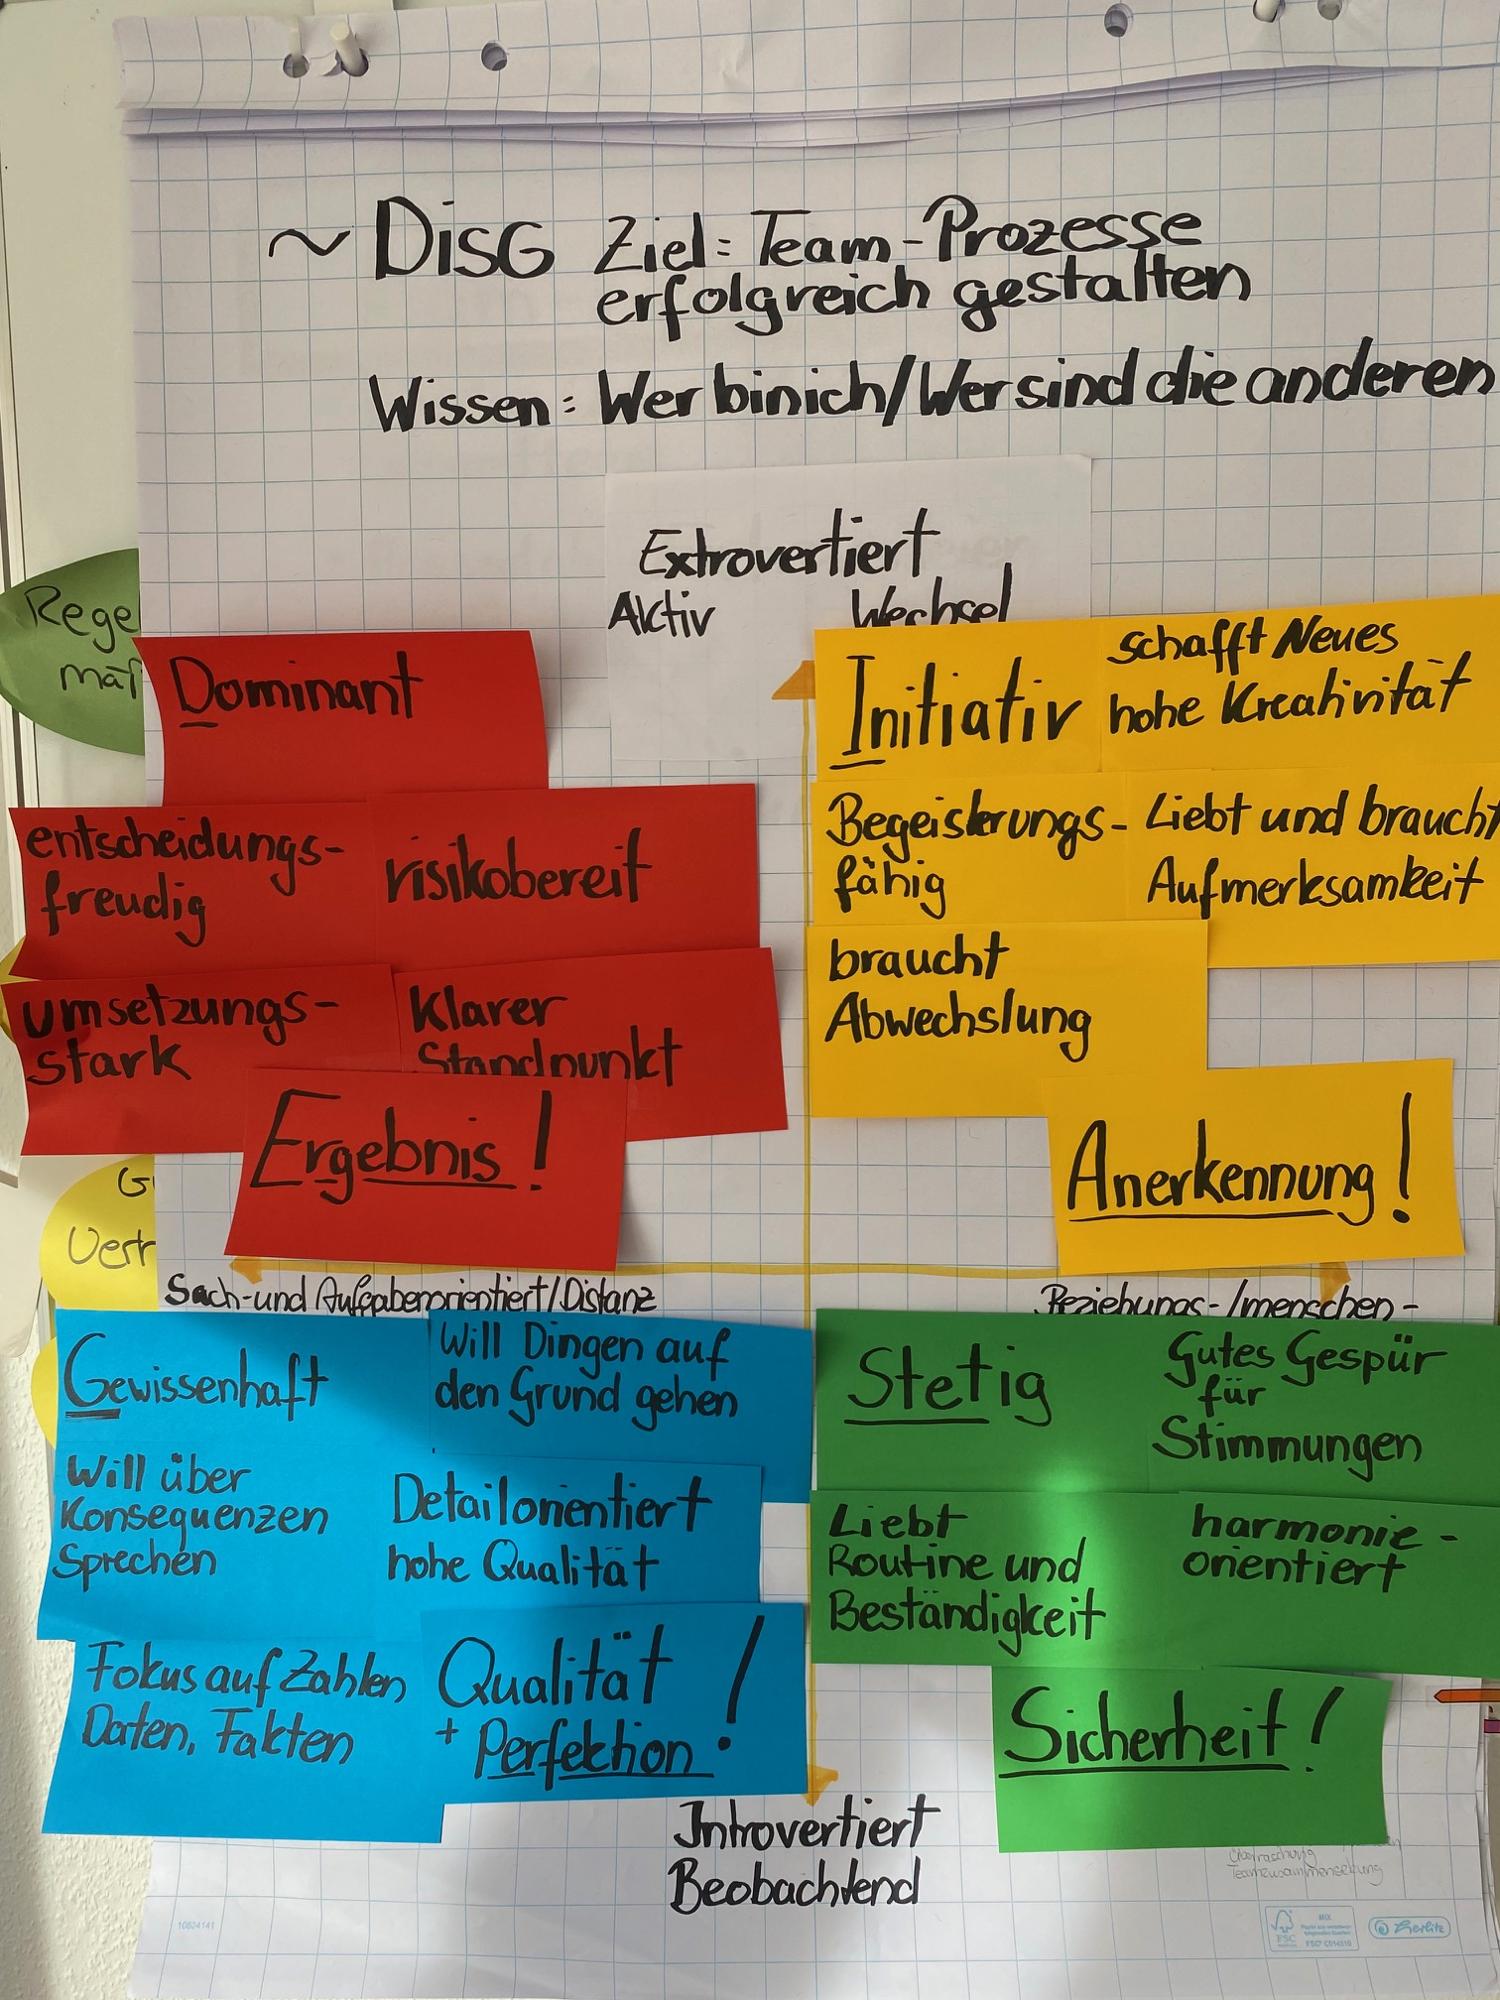 ~ DISG Ziel: Team-Prozesse
erfolgreich gestalten
Wissen: Wer bin ich/Wer sind die anderen
Extrovertiert
Aktiv Wechsel
Rege
mäß
Dominant
entscheidungs-
freudig
risikobereit
umsetzungs-
stark
Klarer
Standpunkt
Ergebnis!
Initiativ
schafft Neues
hohe Kreativität
Begeisterungs-
fähig
Liebt und braucht
Aufmerksamkeit
braucht
Abwechslung
Anerkennung!
G
Vertr
Sach-und Aufgabenorientiert/Distanz
Beziehungs-/menschen-
Gewissenhaft
Will Dingen auf
den Grund gehen
Will über
Konsequenzen
Sprechen
Detailorientiert
hohe Qualität
Fokus auf Zahlen
Daten, Fakten
Qualität
+ Perfektion!
Stetig
Gutes Gespür
für
Stimmungen
Liebt
Routine und
Beständigkeit
harmonie-
orientiert
Sicherheit!
Introvertiert
Beobachtend
Überraschung
Teamzusammensetzung
10624141
FSC
MIX
FSC® C014510
Herlitz